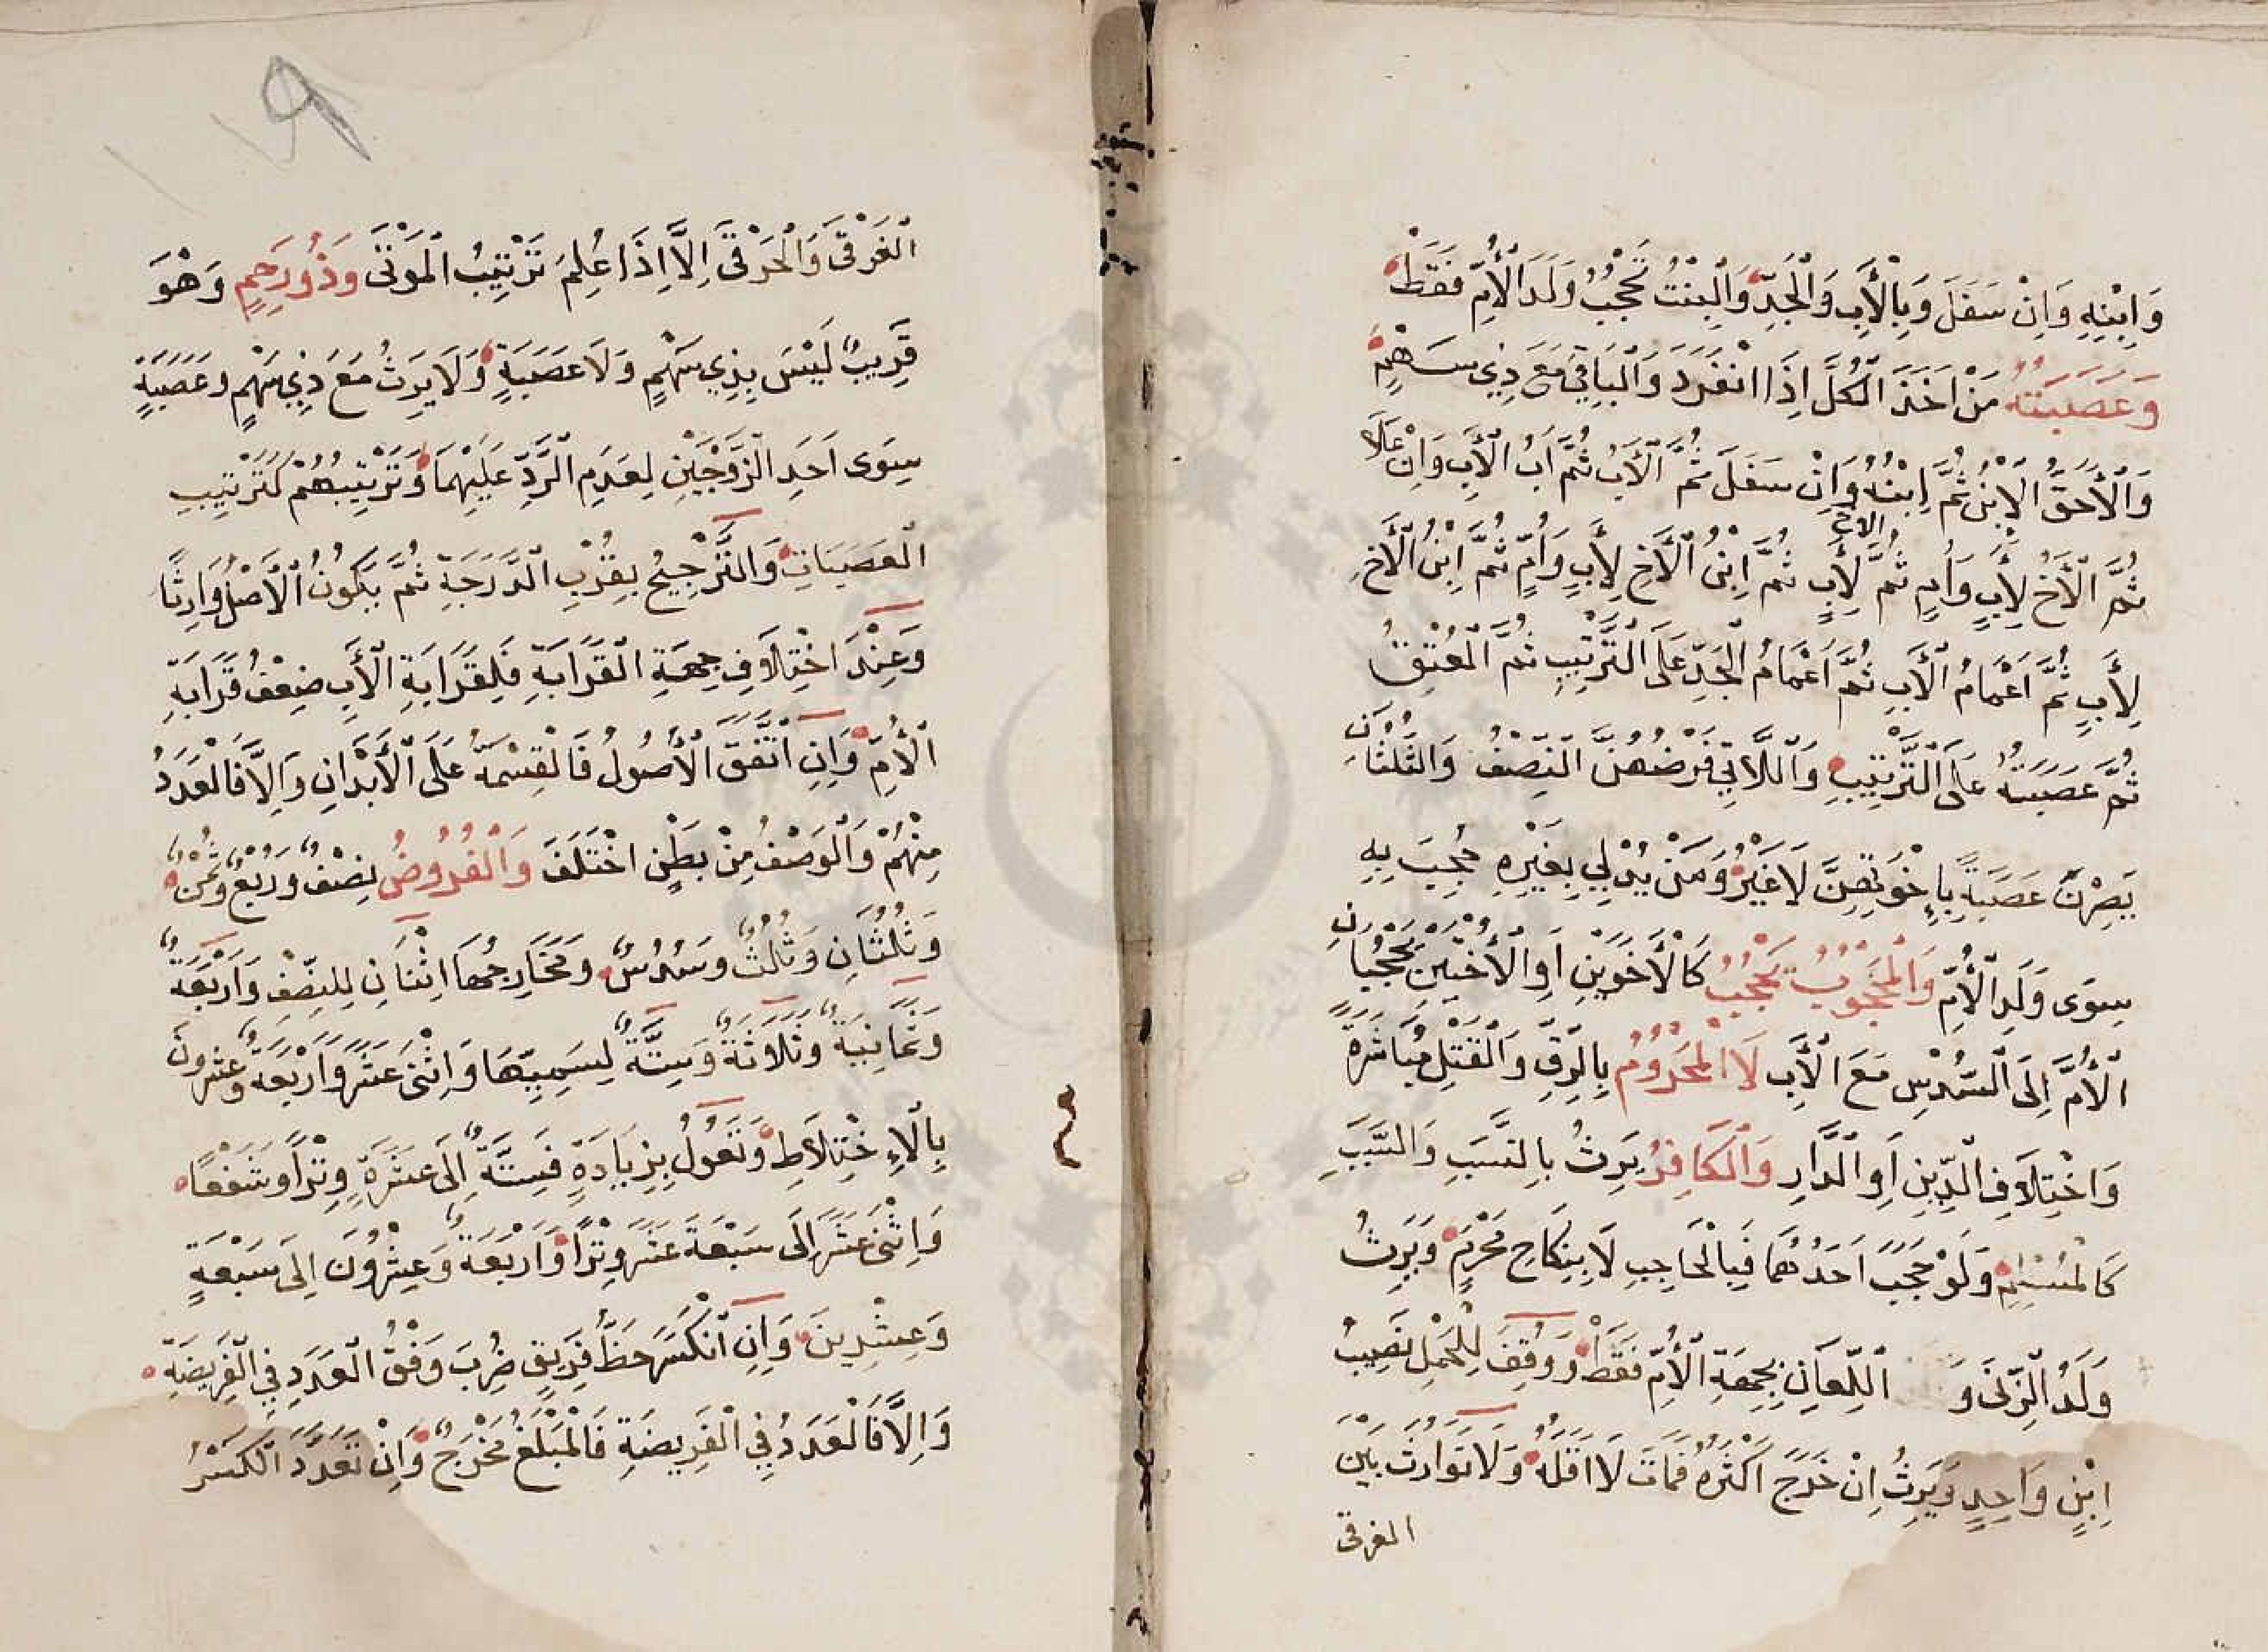 وَابْنِهِ وَاِنْ سَفَلَ وَبِالْأَبِ وَالْجَدِّ وَالْبِنْتُ تَحْجُبُ وَلَدَ الْأُمِّ فَقَطْ
وَعَصَبَتُهُ مَنْ اَخَذَ الْكُلَّ اِذَا انْفَرَدَ وَالْبَاقِيَ مَعَ ذِي سَهْمٍ
وَالْأَحَقُّ الْاِبْنُ ثُمَّ اِبْنُهُ وَاِنْ سَفَلَ ثُمَّ الْأَبُ ثُمَّ اَبُ الْأَبِ وَاِنْ عَلَا
ثُمَّ الْأَخُ لِأَبٍ وَاُمٍ ثُمَّ الاخ لِأَبٍ ثُمَّ اِبْنُ الْأَخِ لِأَبٍ وَاُمٍّ ثُمَّ اِبْنُ الْأَخِ
لِأَبٍ ثُمَّ اَعْمَامُ الْأَبِ ثُمَّ اَعْمَامُ الْجَدِّ عَلَى التَّرْتِيْبِ ثُمَّ الْمُعْتِقُ
ثُمَّ عَصَبَتُهُ عَلَى التَّرْتِيْبِ وَاللَّاتِي فَرْضُهُنَّ النِّصْفُ وَالثُّلُثَانِ
يَصِرْنَ عَصَبَةً بِاِخْوَتِهِنَّ لَا غَيْرُ وَمَنْ يُدْلِي بِغَيْرِهِ حُجِبَ بِهِ
سِوَى وَلَدِ الْأُمِّ وَالْمَحْجُوْبُ يَحْجُبُ كَالْأَخَوَيْنِ اَوِ الْأُخْتَيْنِ يَحْجُبَانِ
الْأُمَّ اِلَى السُّدْسِ مَعَ الْأَبِ لَا الْمَحْرُوْمُ بِالرِّقِّ وَالْقَتْلِ مُبَاشَرَةً
وَاخْتِلَافِ الدِّيْنِ اَوِ الدَّارِ وَالْكَافِرُ يَرِثُ بِالنَّسَبِ وَالسَّبَبِ
كَالْمُسْلِمِ وَلَوْ حَجَبَ اَحَدُهُمَا فَبِالْحَاجِبِ لَا بِنِكَاحِ مَحْرَمٍ وَيَرِثُ
وَلَدُ الزِّنَى وَ اللِّعَانِ بِجِهَةِ الْأُمِّ فَقَطْ وَوُقِفَ لِلْحَمْلِ نَصِيْبُ
اِبْنٍ وَاحِدٍ وَيَرِثُ اِنْ خَرَجَ اَكْثَرُهُ فَمَاتَ لَا اَقَلُّهُ وَلَا تَوَارُثَ بَيْنَ
الغرقى
الْغَرْقَى وَالْحَرْقَى اِلَّا اِذَا عُلِمَ تَرْتِيْبُ الْمَوْتَى وَذُو رَحِمٍ وَهُوَ
قَرِيبٌ لَيْسَ بِذِي سَهْمٍ وَلَا عَصَبَةٍ وَلَا يَرِثُ مَعَ ذِي سَهْمٍ وَعَصَبَةٍ
سِوَى اَحَدِ الزَّوْجَيْنِ لِعَدَمِ الرَّدِّ عَلَيْهِمَا وَتَرْتِيْبُهُمْ كَتَرْتِيْبِ
الْعَصَبَاتِ وَالتَّرْجِيْحُ بِقُرْبِ الدَّرَجَةِ ثُمَّ بِكَوْنِ الْأَصْلِ وَارِثًا
وَعِنْدَ اخْتِلَافِ جِهَةِ الْقَرَابَةِ فَلِقَرَابَةِ الْأَبِ ضِعْفُ قَرَابَةِ
الْأُمِّ وَاِنِ اتَّفَقَ الْأُصُولُ فَالْقِسْمَةُ عَلَى الْأَبْدَانِ وَاِلَّا فَالْعَدَدُ
مِنْهُمْ وَالْوَصْفُ مِنْ بَطْنٍ اخْتَلَفَ وَالْفُرُوْضُ نِصْفٌ وَرُبْعٌ وَثُمْنٌ
وَثُلُثَانِ وَثُلُثٌ وَسُدُسٌ وَمَخَارِجُهَا اِثْنَانِ لِلنِّصْفِ وَاَرْبَعَةٌ
وَثَمَانِيَةٌ وَثَلَاثَةٌ وَسِتَّةٌ لِسَمِيِّهَا وَاِثْنَى عَشَرَ وَاَرْبَعَةٌ وَعِشْرُونَ
بِالْاِخْتِلَاطِ وَتَعُوْلُ بِزِيَادَةٍ فَسِتَّةٌ اِلَى عَشَرَةٍ وِتْرًا وَشَفْعًا
وَاِثْنَى عَشَرَ اِلَى سَبْعَةَ عَشَرَ وِتْرًا وَاَرْبَعَةٌ وَعِشْرُوْنَ اِلَى سَبْعَةٍ
وَعِشْرِينَ وَاِنِ انْكَسَرَ حَظُّ فَرِيقٍ ضُرِبَ وَفْقُ الْعَدَدِ فِي الْفَرِيضَةِ
وَاِلَّا فَالْعَدَدُ فِي الْفَرِيضَةِ فَالْمَبْلَغُ مَخْرَجٌ وَاِنْ تَعَدَّدَ الْكَسْرُ